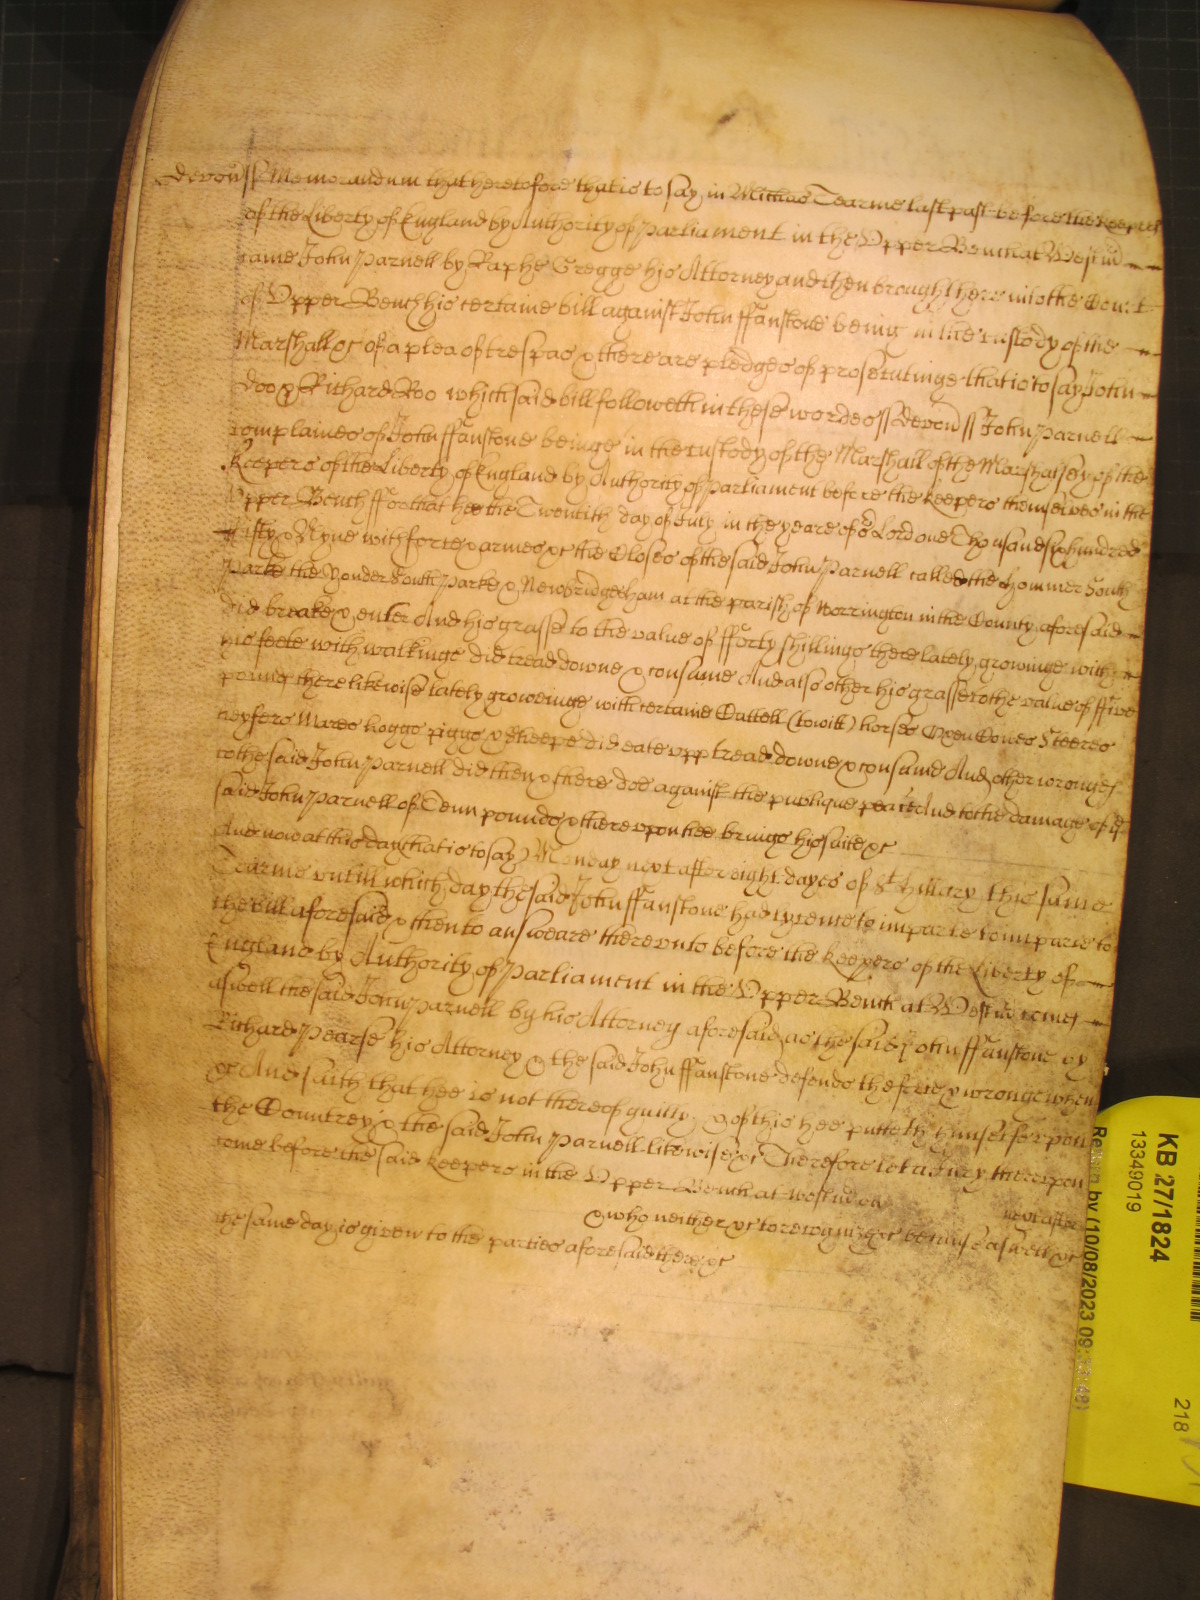 Devon ss Memorandum that heretofore that is to say in Michas Tearme last past before the Keepers
of the Liberty of England by Authority of Parliament in the Upper Bench at Westm̄
came John Parnell by Raphe Gregge his Attorney and then brought here into the Court
of Upper Bench his certaine bill against John ffanstone being in the custody of the
Marshall &c of a plea of trespas & there are pledges of prosecutinge that is to say John
Doo & Richard Roo which said bill followeth in these wordes ss Devon ss John Parnell
complaines of John ffanstone beinge in the custody of the Marshall of the Marshalsey of the
Keepers of the Liberty of England by Authority of Parliament before the Keepers themselves in the
Upper Bench ffor that hee the Twentith day of July in the yeare of oʳ Lord one Thousand six hundred
fifty & Nyne with force & armes &c the Closes of the said John Parnell called the hommer South
Parke the Yonder South Parke & Newbridge ham at the parish of Norrington in the County aforesaid
did breake & enter And his grasse to the value of fforty shillings there lately growinge with
his feete with walkinge did tread downe & consume And also other his grasse to the value of ffive
pounds there likewise lately groweinge with certaine Cattell (towitt) horses Oxen Cowes Steeres
heyfers Mares hoggs piggs & Sheepe did eate upp tread downe & consume And other wronges
to the said John Parnell did then & there doe against the publique peace And to the damage of yͤ
said John Parnell of Tenn pounds & thereupon hee brings his suite &c
And now at this day (that is to say) Monday next after eight dayes of Sᵗ Hillary this same
Tearme untill which day the said John ffanstone had lycence to imparle to imparle to
the bill aforesaid & then to answeare thereunto before the Keepers of the Liberty of
England by Authority of Parliament in the Upper Bench at Westm̄ comes
aswell the said John Parnell by his Attorney aforesaid as the said John ffanstone by
Richard Pearse his Attorney & the said John ffanstone defends the force & wronge when
&c And saith that hee is not thereof guilty & of this hee putteth himselfe upon
the Countrey & the said John Parnell likewise &c Therefore let a Jury thereupon
come before the said Keepers in the Upper Bench at Westm̄ on next after
& who neither &c to recognize &c because aswell &c
the same day is given to the parties aforesaid there &c
KB 27/1824
13349019
by (10/08/2023 09:
218